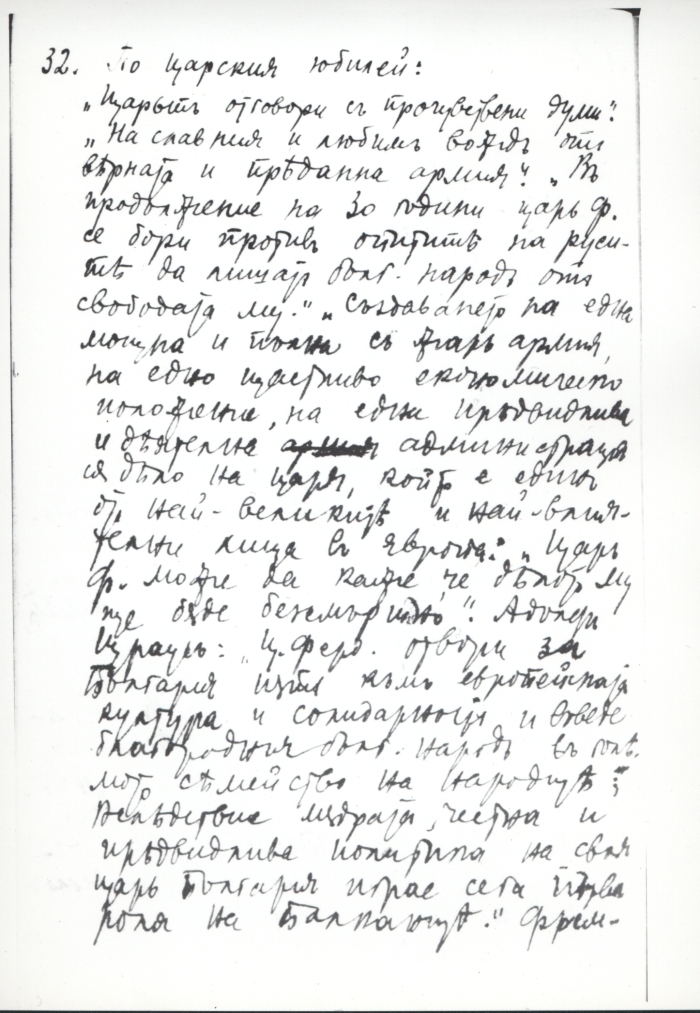 32. По царския юбилей:
„Царьтъ отговори съ прочувствени думи“.
„На славния и любимъ вождъ отъ
вѣрната и прѣданна армия“. „Въ
продължение на 30 години царь Ф.
се бори противъ опититѣ на руси-
тѣ да лишатъ бълг. народъ отъ
свободата му.“ „Създаването на една
мощна и пълна съ жарь армия,
на едно щастливо економическо
положение, на една прѣдвидлива
и дѣятелна администрация
ся дѣло на царя, който е единъ
отъ най-великитѣ и най-влия-
телни лица въ Европа.“ „Царь
Ф. може да каже, че дѣлото му
ще бѫде безсмъртно“. Адолфъ
Щраусъ: „Ц. Ферд. отвори за
България пѫтя къмъ европейската
култура и солидарность и въведе
благородния бълг. народъ въ голѣ-
мото сѣмейство на народитѣ“;
„Вслѣдствие мѫдрата, честна и
прѣдвидлива политика на своя
царь България играе сега първа
роля на Балканитѣ.“ Фрем-